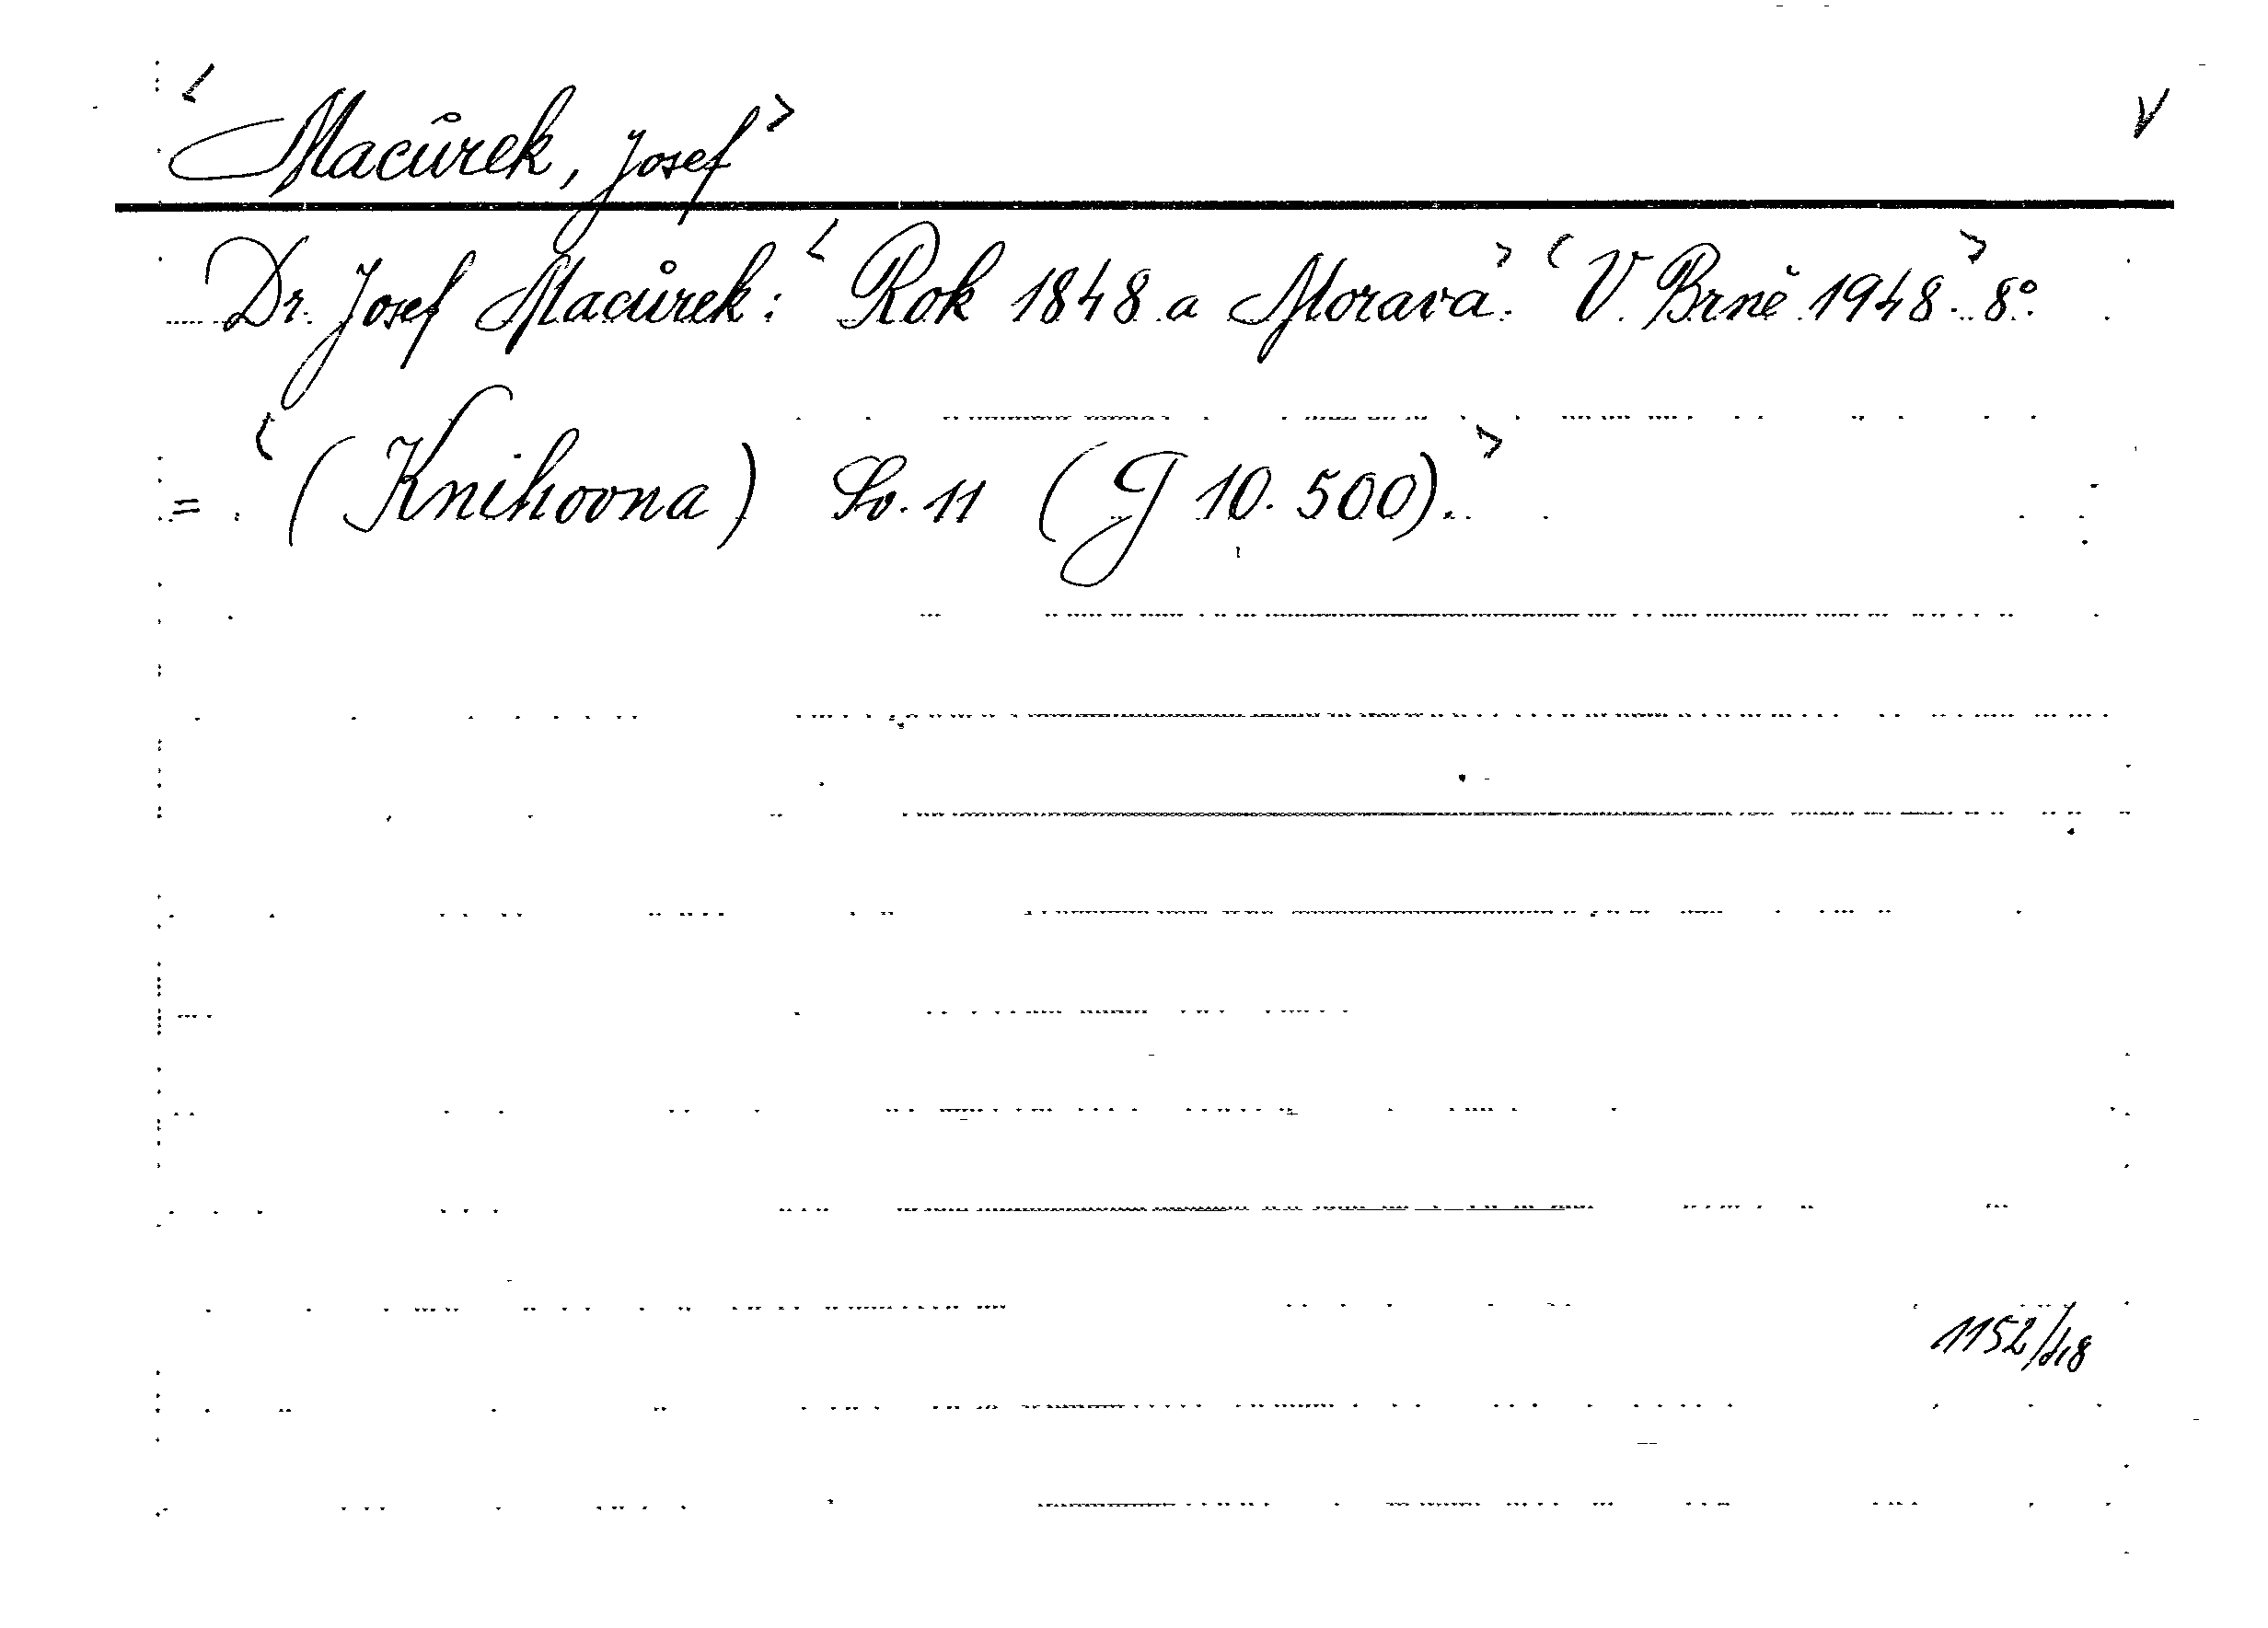 <Macůrek, Josef> V
Dr. Josef Macůrek: <Rok 1848 a Morava.> <V Brně 1948.> 8°.
= <(Knihovna) Sv. 11 (G 10.500).>
1152/48